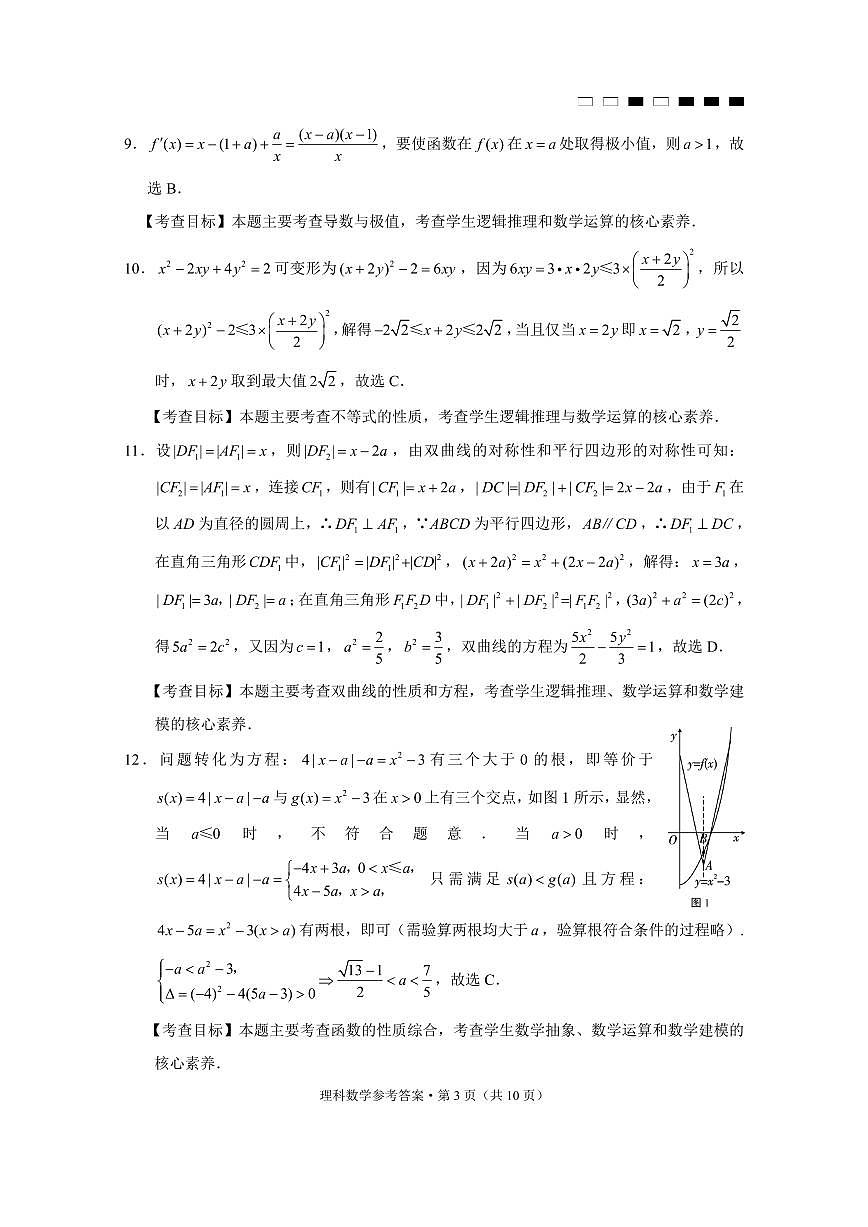 9．f′(x)=x−(1+a)+a/x=(x−a)(x−1)/x，要使函数在 f(x) 在 x=a 处取得极小值，则 a>1，故
选 B．
【考查目标】本题主要考查导数与极值，考查学生逻辑推理和数学运算的核心素养．
10．x²−2xy+4y²=2 可变形为 (x+2y)²−2=6xy，因为 6xy=3•x•2y≤3×((x+2y)/2)²，所以
(x+2y)²−2≤3×((x+2y)/2)²，解得 −2√2≤x+2y≤2√2，当且仅当 x=2y 即 x=√2，y=√2/2
时，x+2y 取到最大值 2√2，故选 C．
【考查目标】本题主要考查不等式的性质，考查学生逻辑推理与数学运算的核心素养．
11．设|DF₁|=|AF₁|=x，则|DF₂|=x−2a，由双曲线的对称性和平行四边形的对称性可知：
|CF₂|=|AF₁|=x，连接CF₁，则有|CF₁|=x+2a，|DC|=|DF₂|+|CF₂|=2x−2a，由于F₁在
以 AD 为直径的圆周上，∴DF₁⊥AF₁，∵ABCD 为平行四边形，AB∥CD，∴DF₁⊥DC，
在直角三角形CDF₁中，|CF₁|²=|DF₁|²+|CD|²，(x+2a)²=x²+(2x−2a)²，解得：x=3a，
|DF₁|=3a，|DF₂|=a；在直角三角形F₁F₂D中，|DF₁|²+|DF₂|²=|F₁F₂|²，(3a)²+a²=(2c)²，
得5a²=2c²，又因为c=1，a²=2/5，b²=3/5，双曲线的方程为5x²/2−5y²/3=1，故选 D．
【考查目标】本题主要考查双曲线的性质和方程，考查学生逻辑推理、数学运算和数学建
模的核心素养．
12．问题转化为方程：4|x−a|−a=x²−3 有三个大于 0 的根，即等价于
s(x)=4|x−a|−a 与 g(x)=x²−3 在 x>0 上有三个交点，如图 1 所示，显然，
当 a≤0 时，不符合题意．当 a>0 时，
s(x)=4|x−a|−a={−4x+3a，0<x≤a，4x−5a，x>a， 只需满足 s(a)<g(a) 且方程：
4x−5a=x²−3(x>a) 有两根，即可（需验算两根均大于 a，验算根符合条件的过程略）．
{−a<a²−3，Δ=(−4)²−4(5a−3)>0 ⇒ (√13−1)/2<a<7/5，故选 C．
【考查目标】本题主要考查函数的性质综合，考查学生数学抽象、数学运算和数学建模的
核心素养．
y
y=f(x)
O
B
x
A
y=x²−3
图 1
理科数学参考答案·第 3 页（共 10 页）